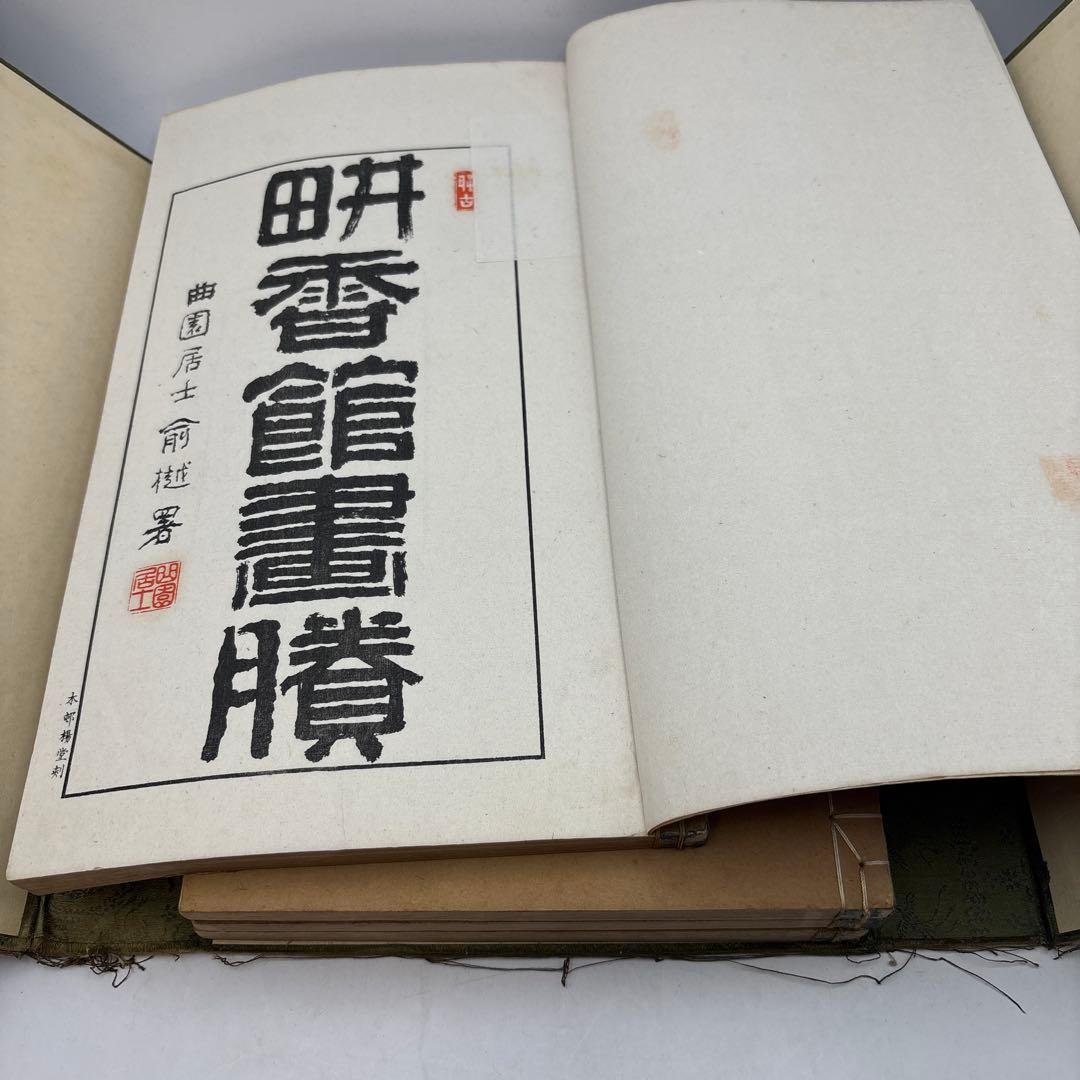 畊香館畫賸
曲園居士俞樾署
曲園居士
木邨楊堂刻